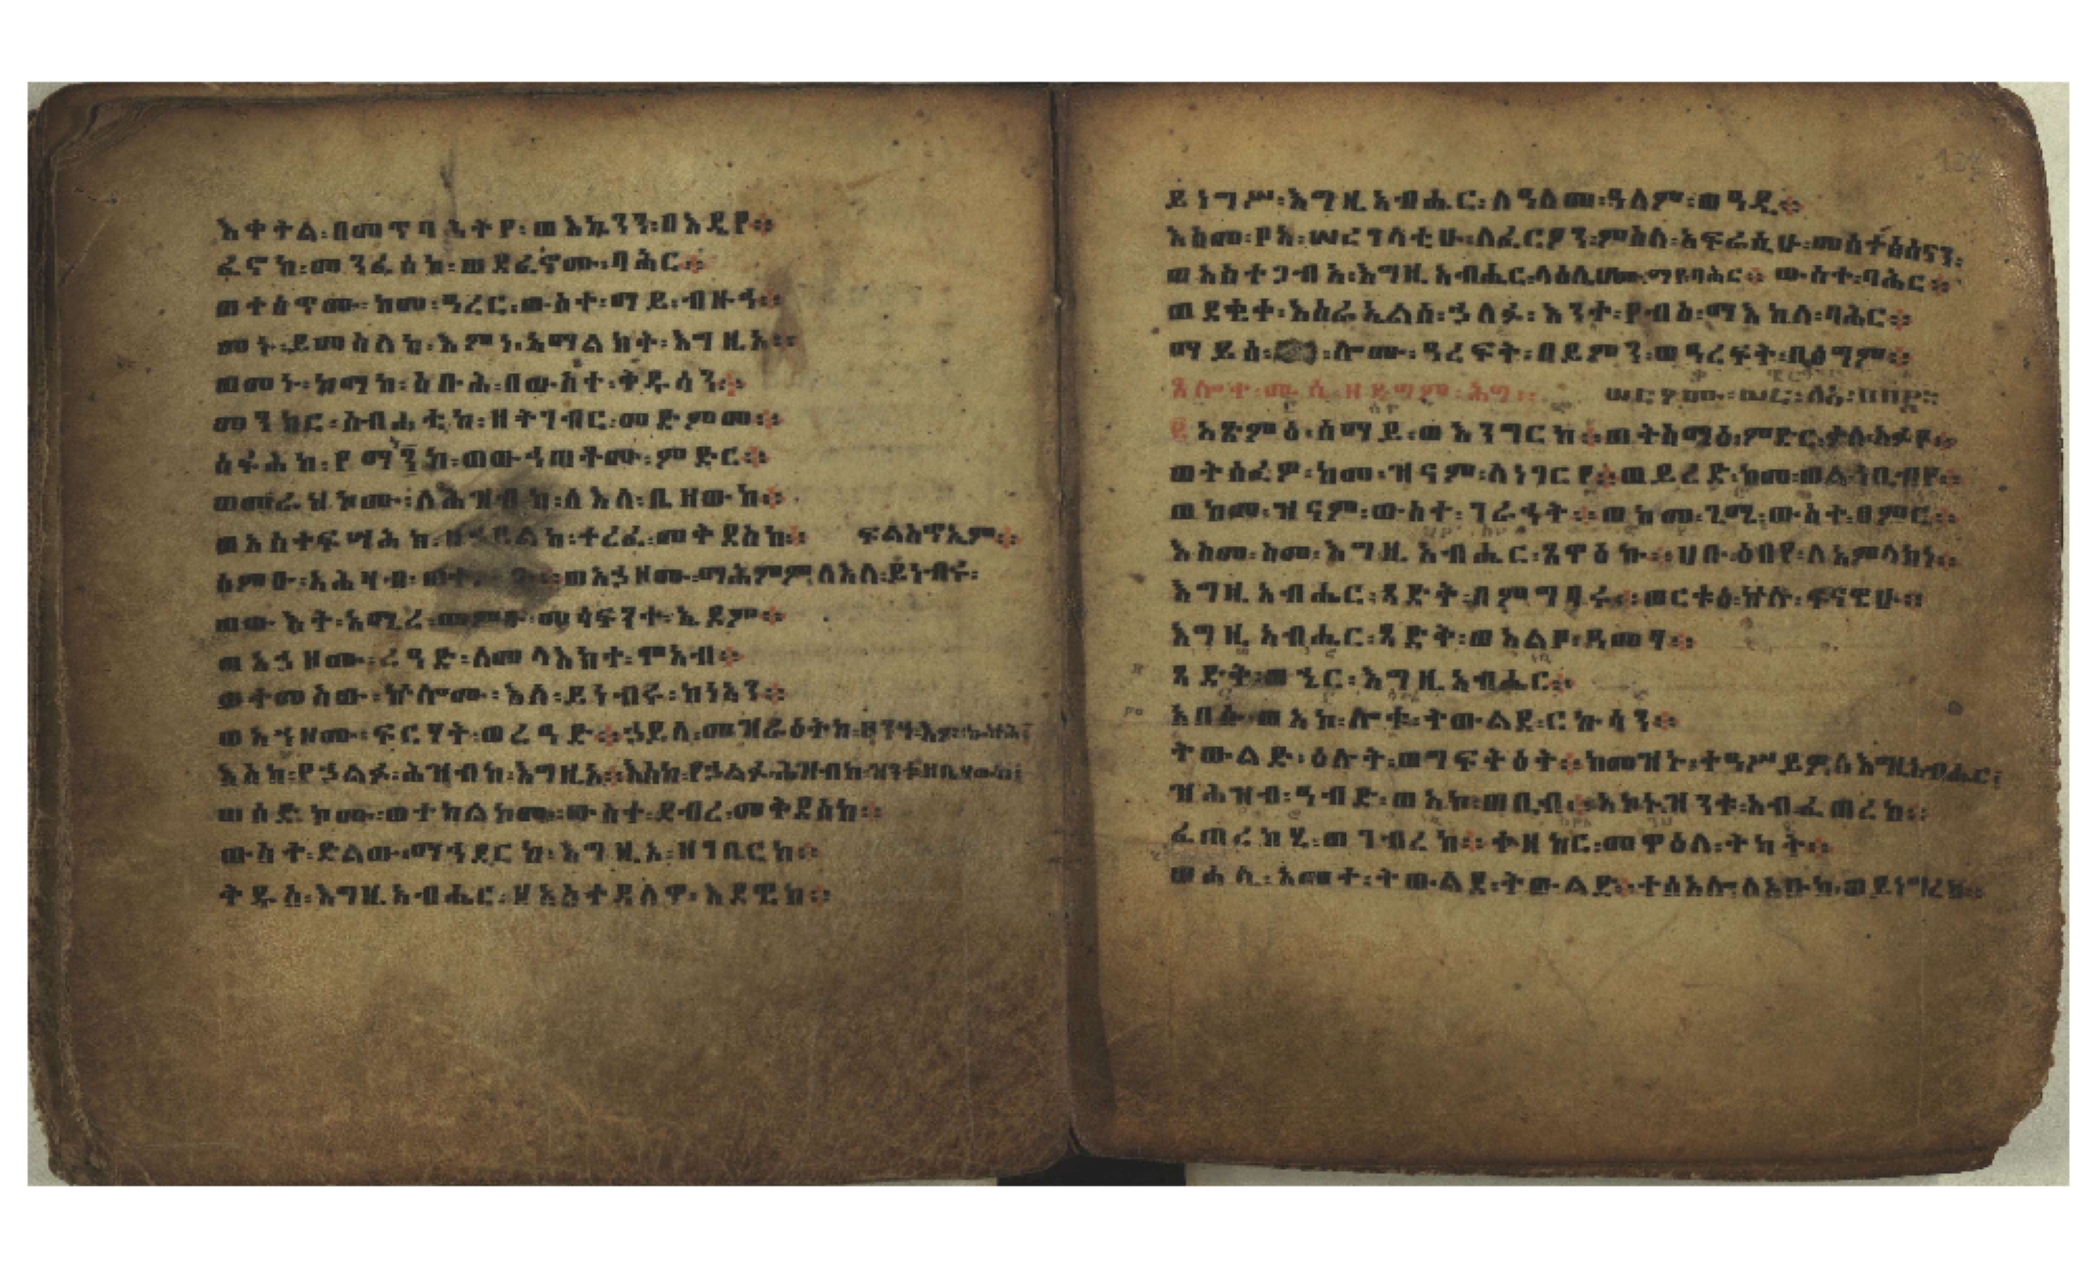 እቀትል፡በመጥባሕትየ፡ወእኴንን፡በእዴየ።
ፈኖከ፡መንፈሰከ፡ወደፈኖሙ፡ባሕር።
ወተሰጥሙ፡ከመ፡ዓረር፡ውስተ፡ማይ፡ብዙኅ።
መኑ፡ይመስለከ፡እምነ፡አማልክት፡እግዚአ።
ወመኑ፡ከማከ፡ስቡሕ፡በውስተ፡ቅዱሳን።
መንክር፡ስብሐቲከ፡ዘትገብር፡መድምመ።
ሰፋሕከ፡የማንከ፡ወውኅጠቶሙ፡ምድር።
ወመራኅኮሙ፡ለሕዝብከ፡ለእለ፡ቤዘውከ።
ወአስተፍሣሕከ፡በኃይልከ፡ተረፈ፡መቅደስከ። ፍልስጥኤም።
ሰምዑ፡አሕዛብ፡ ወአኃዞሙ፡ማሕምም፡ለእለ፡ይነብሩ፡
ወውእት፡አሚረ፡ መሳፍንተ፡ኤዶም።
ወአኃዞሙ፡ረዓድ፡ለመላእክተ፡ሞአብ።
ወተመስው፡ኵሎሙ፡እለ፡ይነብሩ፡ከነአን።
ወአኀዞሙ፡ፍርሃት፡ወረዓድ።ኃይለ፡መዝራዕትከ፡
እስከ፡የኃልፉ፡ሕዝብከ፡እግዚአ።እስከ፡የኃልፉ፡ሕዝብከ፡ዝንቱ፡
ወሰድኮሙ፡ወተከልኮሙ፡ውስተ፡ደብረ፡መቅደስከ።
ውስተ፡ድልው፡ማኅደርከ፡እግዚአ፡ዘገበርከ።
ቅዱስ፡እግዚአብሔር፡ዘአስተዳለዋ፡እደዊከ።
ይነግሥ፡እግዚአብሔር፡ለዓለመ፡ዓለም፡ወዓዲ።
እስመ፡ቦአ፡ሠረገላቲሁ፡ለፈርዖን፡ምስለ፡አፍራሲሁ፡
ወአስተጋብአ፡እግዚአብሔር፡ላዕሌሆሙ፡ማየ፡ባሕር። ውስተ፡ባሕር።
ወደቂቀ፡እስራኤልሰ፡ኃለፉ፡እንተ፡የብስ፡ማእከለ፡ባሕር።
ማይሰ፡ ሎሙ፡ዓረፍት፡በይምን፡ወዓረፍት፡በፅግም።
ጸሎተ፡ሙሴ፡ዘዳግም፡ሕግ።
አጽምዕ፡ሰማይ፡ወእንግርከ።ወትስማዕ፡ምድር፡ቃለ፡አፉየ።
ወትሰፈዎ፡ከመ፡ዝናም፡ለነገርየ።ወይረድ፡ከመ፡
ወከመ፡ዝናም፡ውስተ፡ገራኅት።ወከመ፡ጊሜ፡ውስተ፡
እስመ፡ስመ፡እግዚአብሔር፡ጸዋዕኩ።ሀቡ፡ዕበየ፡ለአምላክነ።
እግዚአብሔር፡ጻድቅ፡በምግባሩ።ወርቱዕ፡ኵሉ፡ፍናዊሁ።
እግዚአብሔር፡ጻድቅ፡ወአልቦ፡ዓመፃ።
ጻድቅ፡ወኄር፡እግዚአብሔር።
አበሱ፡ወአኮ፡ሎቱ፡ትውልደ፡ርኩሳን።
ትውልድ፡ዕሉት፡ወግፍትዕት።ከመዝኑ፡ተዓሥይዎ፡ለእግዚአብሔር፡
ዝሕዝብ፡ዓብድ፡ወአኮ፡ጠቢብ።አኮኑ፡ዝንቱ፡አብ፡ፈጠረከ።
ፈጠረከሂ፡ወገብረከ።ተዘከር፡መዋዕለ፡ትካት።
ወሐሊ፡አመተ፡ትውልደ፡ትውልድ።ተሰአሎ፡ለአቡከ፡ወይነግረከ።